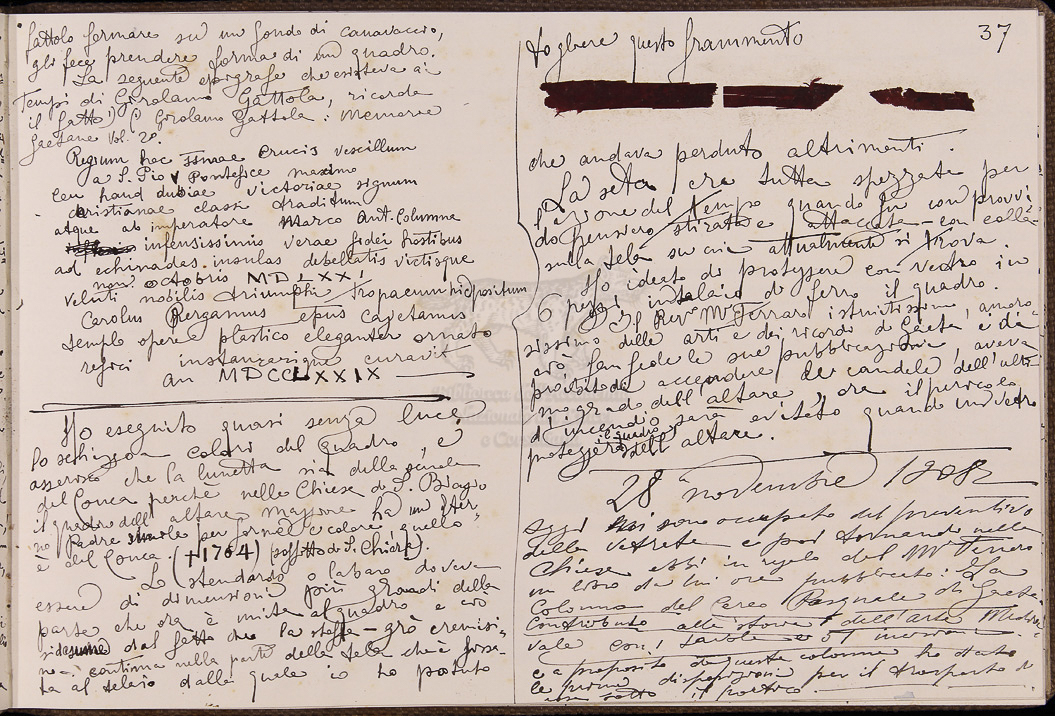 fattolo fermare su un fondo di canavaccio,
gli fece prendere forma di un quadro.
La seguente epigrafe che esisteva ai
tempi di Girolamo Gattola, ricorda
il fatto: (1) Girolamo Gattola: Memorie
Gaetane Vol. 2º.
Regium hoc Crucis vescillum
a S. Pio V Pontefice maximo
ceu haud dubiae victoriae signum
cristianae classi traditum
atque ab imperatore Marco Ant. Columna
infensissimis verae fidei hostibus
ad echinadas insulas debellatis victisque
non. octobris MDLXXI
veluti nobilis triumphi tropaeum hic positum
Carolus Pergamus epus cajetanus
templo opere plastico eleganter ornato
refici instaurarique curavit
an MDCCLXXIX
Ho eseguito quasi senza luce
lo schizzo a colori del quadro, e
asserisco che la lunetta sia della scuola
del Conca perchè nelle Chiese di S. Biagio
il quadro dell'altare maggiore ha un Eter-
no Padre simile per forma e colore, quello
è del Conca. (+1764) soffitto di S. Chiara).
Lo stendardo o labaro doveva
essere di dimensioni più grandi della
parte che ora è unita al quadro e ciò
si desume dal fatto che la stoffa - grò cremisi-
no - continua nella parte della tela che è fissa-
ta al telaio dalla quale io ho potuto
37
togliere questo frammento
che andava perduto altrimenti.
La seta era tutta spezzata per
l'azione del tempo quando fu con provvi-
do pensiero stirata e attaccata con colla
sulla tela su cui attualmente si trova.
Ho ideato di proteggere con vetro in
6 pezzi, intelaio di ferro il quadro.
Il Revº Mº Ferraro istruitissimo, amoro-
sissimo delle arti e dei ricordi di Gaeta e di
ciò fan fede le sue pubblicazioni, aveva
proibito di accendere le candele dell'ulti-
mo grado dell'altare, ora il pericolo
di incendio sarà evitato quando un vetro
proteggerà il quadro dell'altare.
28 novembre 1908
Oggi mi sono occupato del preventivo
della vetrata e poi tornando nella
Chiesa ebbi in regalo del Mº Ferraro
un libro da lui ora pubblicato: La
Colonna del Cereo Pasquale di Gaeta
Contributo alla storia dell'arte Medioe-
vale con tavole e 51 incisioni.
e a proposito di questa colonna ho dato
le prime disposizioni per il trasporto di
essa sotto il portico.